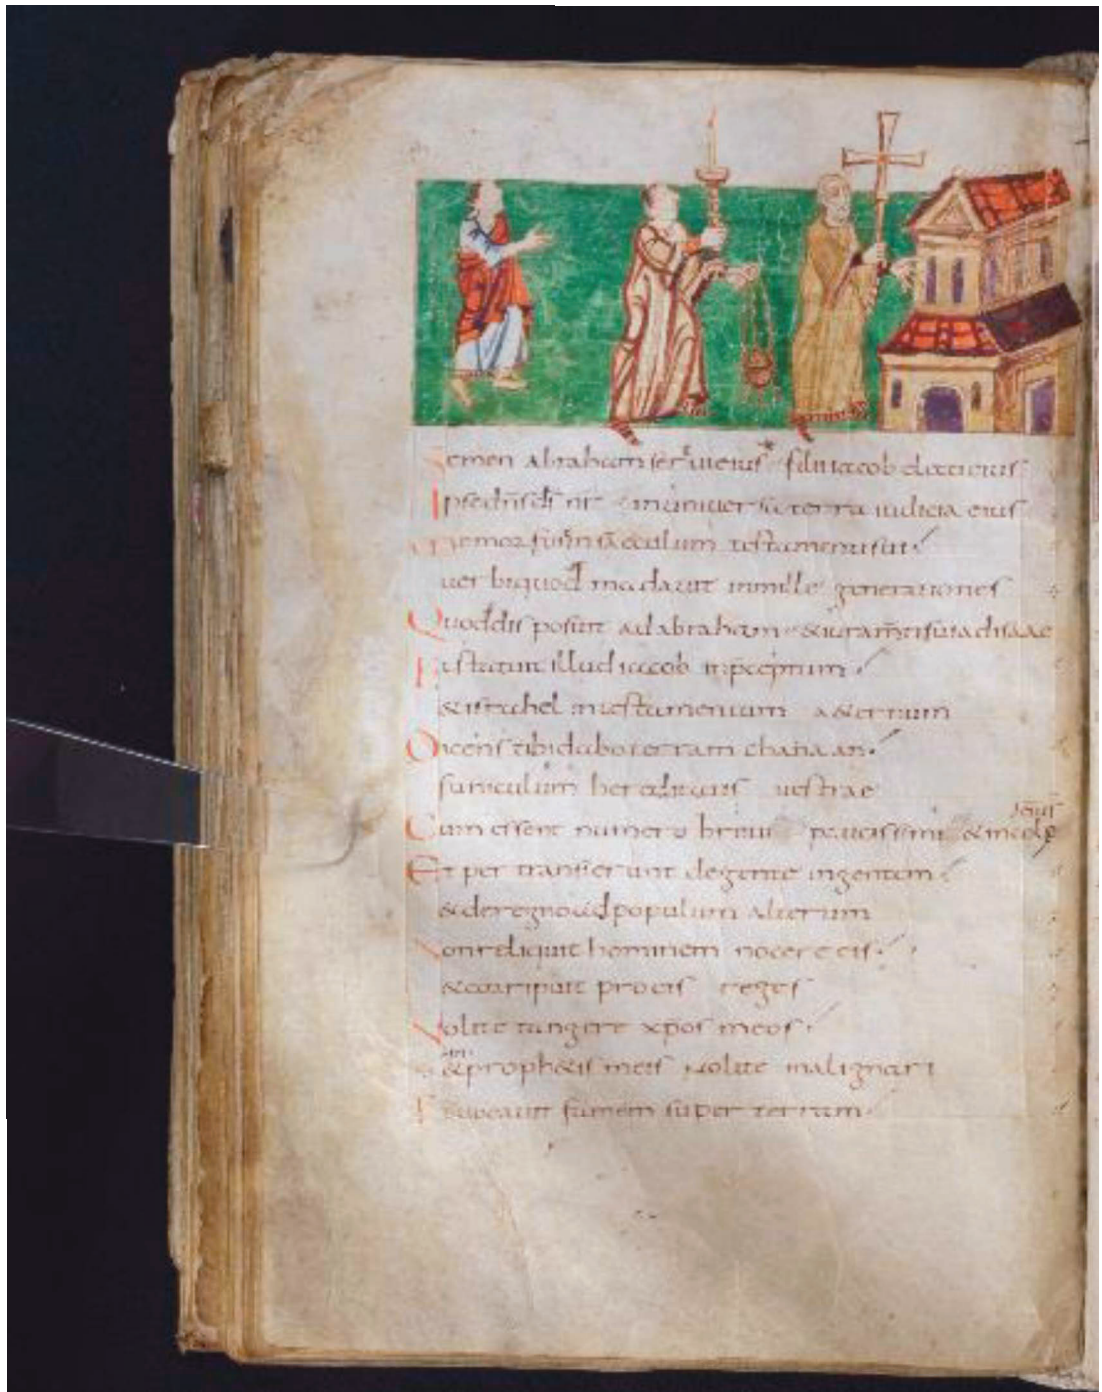 Semen abraham serui eius filii iacob electi eius
Ipse dn̄s ds̄ nr̄ in uniuersa terra iudicia eius
Memor fuit in saeculum testamenti sui
uerbi quod mādauit in mille generationes
Quod disposuit ad abraham & iuram̄ti sui ad isaac
Et statuit illud iacob in p̄ceptum
& israhel in testamentum a&ernum
Dicens tibi dabo terram chanaan
funiculum hereditatis uestrae
Cum essent numero breui paucissimi & incolę
Et per transierunt de gente in gentem
& de regno ad populum alterum
Non reliquit hominem nocere eis
& corripuit pro eis reges
Nolite tangere xp̄os meos
& in proph&is meis nolite malignari
Et uocauit famem super terram